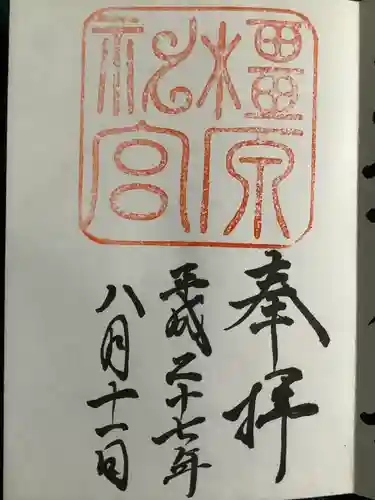 橿原
神宮
奉拝
平成二十七年
八月十一日